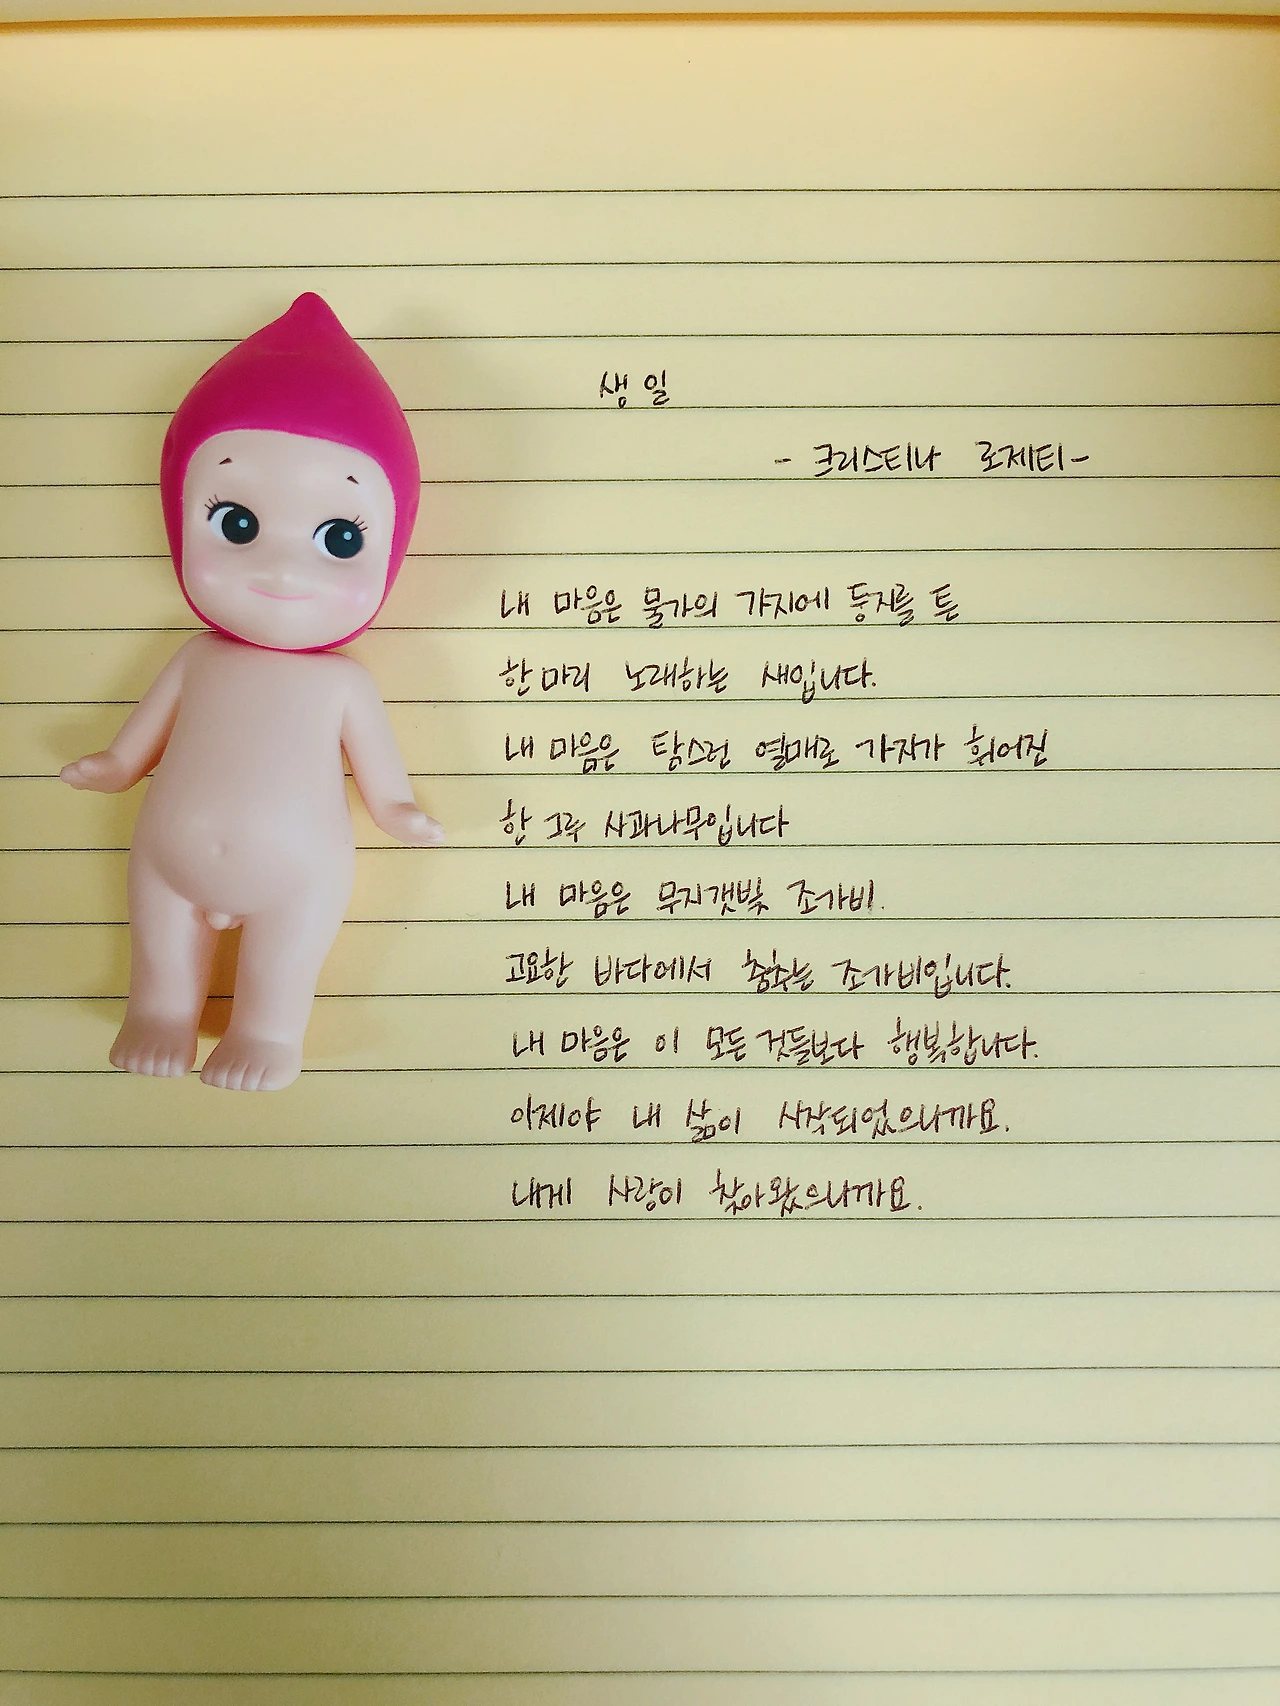 생일
- 크리스티나 로제티-
내 마음은 물가의 가지에 둥지를 튼
한마리 노래하는 새입니다.
내 마음은 탐스런 열매로 가지가 휘어진
한 그루 사과나무입니다
내 마음은 무지갯빛 조가비.
고요한 바다에서 춤추는 조가비입니다.
내 마음은 이 모든 것들보다 행복합니다.
이제야 내 삶이 시작되었으니까요.
내게 사랑이 찾아왔으니까요.